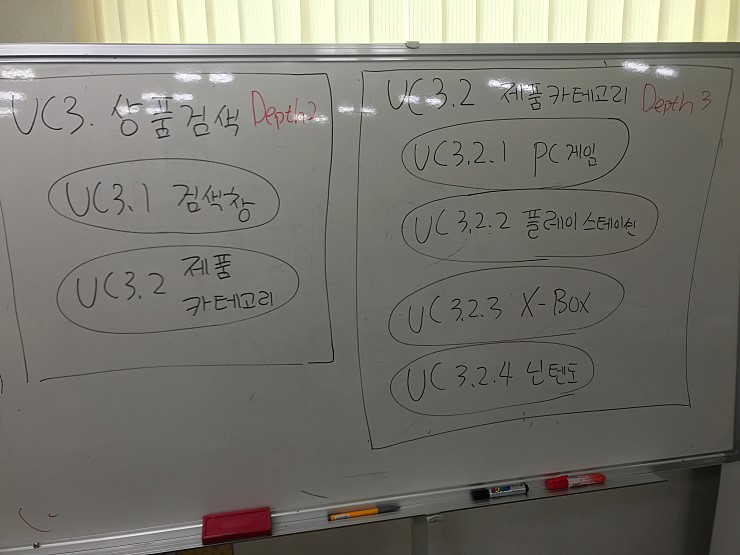 UC3. 상품검색 Depth2
UC3.1 검색창
UC3.2 제품
카테고리
UC3.2 제품카테고리 Depth 3
UC3.2.1 PC게임
UC3.2.2 플레이스테이션
UC3.2.3 X-Box
UC3.2.4 닌텐도